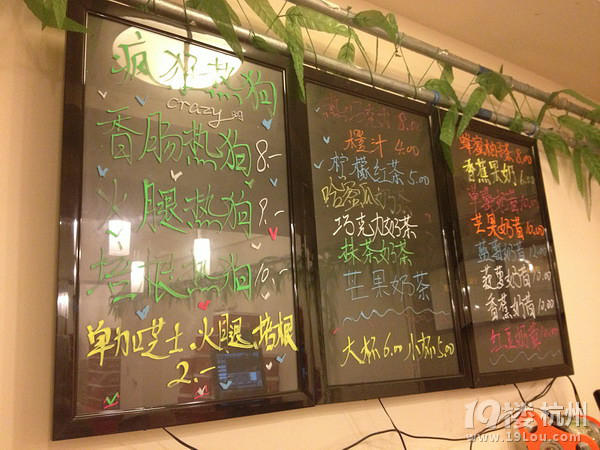 疯狂热狗
crazy
香肠热狗 8.-
火腿热狗 9.-
培根热狗 10.-
单加芝士.火腿.培根
2.-
8.00
橙汁 4.00
柠檬红茶 5.00
哈蜜瓜奶茶
巧克力奶茶
抹茶奶茶
芒果奶茶
大杯6.00 小杯5.00
蜂蜜柚子茶 8.00
香蕉果奶 6.00
芒果奶昔 10.00
蓝莓奶昔
菠萝奶昔 10.00
香蕉奶昔 10.00
红豆奶昔 10.00
19楼 杭州
www.19lou.com